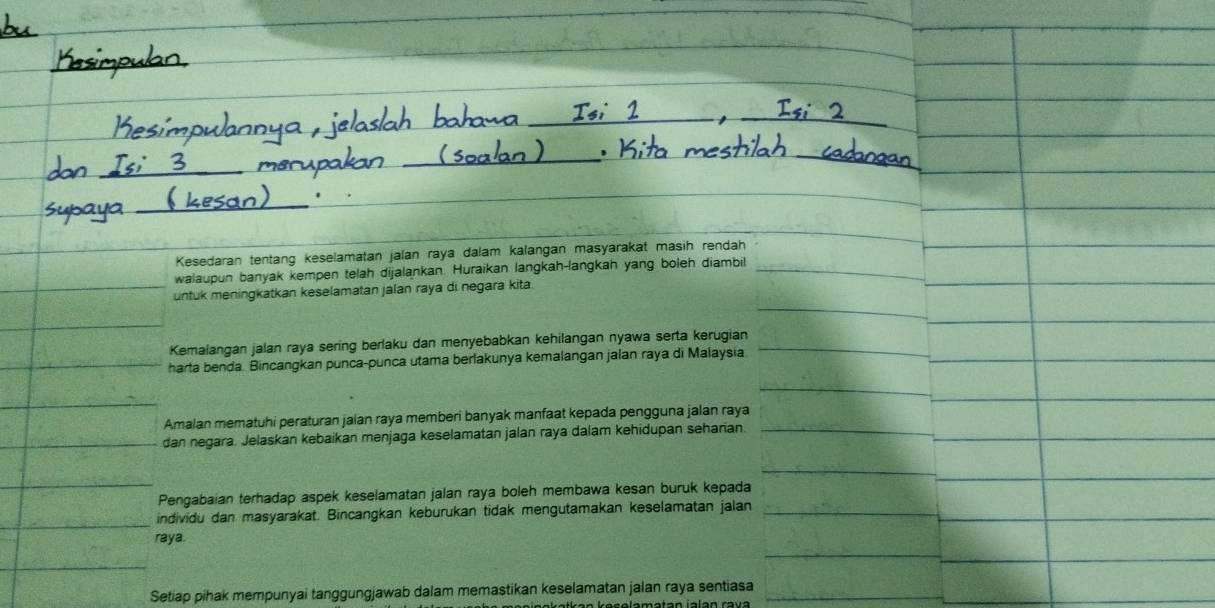 bu
Kesimpulan
Kesimpulannya, jelaslah bahawa Isi 1, Isi 2
dan Isi 3 merupakan (soalan). Kita mestilah cadangan
supaya (kesan).
Kesedaran tentang keselamatan jalan raya dalam kalangan masyarakat masih rendah
walaupun banyak kempen telah dijalankan. Huraikan langkah-langkah yang boleh diambil
untuk meningkatkan keselamatan jalan raya di negara kita.
Kemalangan jalan raya sering berlaku dan menyebabkan kehilangan nyawa serta kerugian
harta benda. Bincangkan punca-punca utama berlakunya kemalangan jalan raya di Malaysia.
Amalan mematuhi peraturan jalan raya memberi banyak manfaat kepada pengguna jalan raya
dan negara. Jelaskan kebaikan menjaga keselamatan jalan raya dalam kehidupan seharian.
Pengabaian terhadap aspek keselamatan jalan raya boleh membawa kesan buruk kepada
individu dan masyarakat. Bincangkan keburukan tidak mengutamakan keselamatan jalan
raya.
Setiap pihak mempunyai tanggungjawab dalam memastikan keselamatan jalan raya sentiasa
keselamatan jalan raya